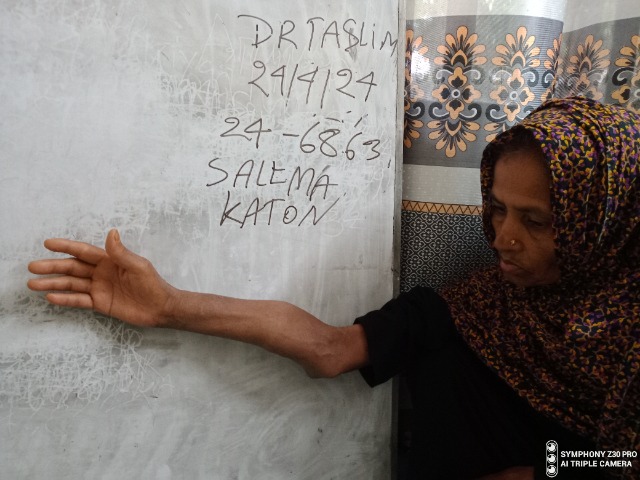 DR TASLIM
24/4/24
24-6863,
SALEMA
KATON
SYMPHONY Z30 PRO
AI TRIPLE CAMERA